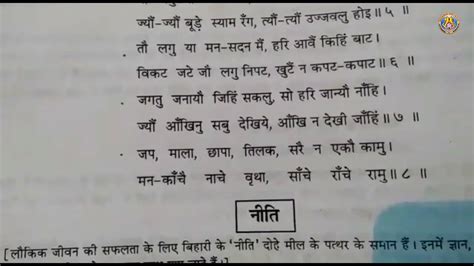 ज्यौं-ज्यौं बूड़े स्याम रँग, त्यौं-त्यौं उज्जवलु होइ॥ ५ ॥
तौ लगु या मन-सदन मैं, हरि आवैं किहिं बाट।
विकट जटे जौ लगु निपट, खुटैं न कपट-कपाट॥ ६ ॥
जगतु जनायौ जिहिं सकलु, सो हरि जान्यौ नाँहिं।
ज्यौं आँखिनु सबु देखिये, आँखि न देखी जाँहिं॥ ७ ॥
जप, माला, छापा, तिलक, सरै न एकौ कामु।
मन-काँचै नाचे वृथा, साँचे राँचे रामु॥ ८ ॥
नीति
[लौकिक जीवन की सफलता के लिए बिहारी के 'नीति' दोहे मील के पत्थर के समान हैं। इनमें ज्ञान,